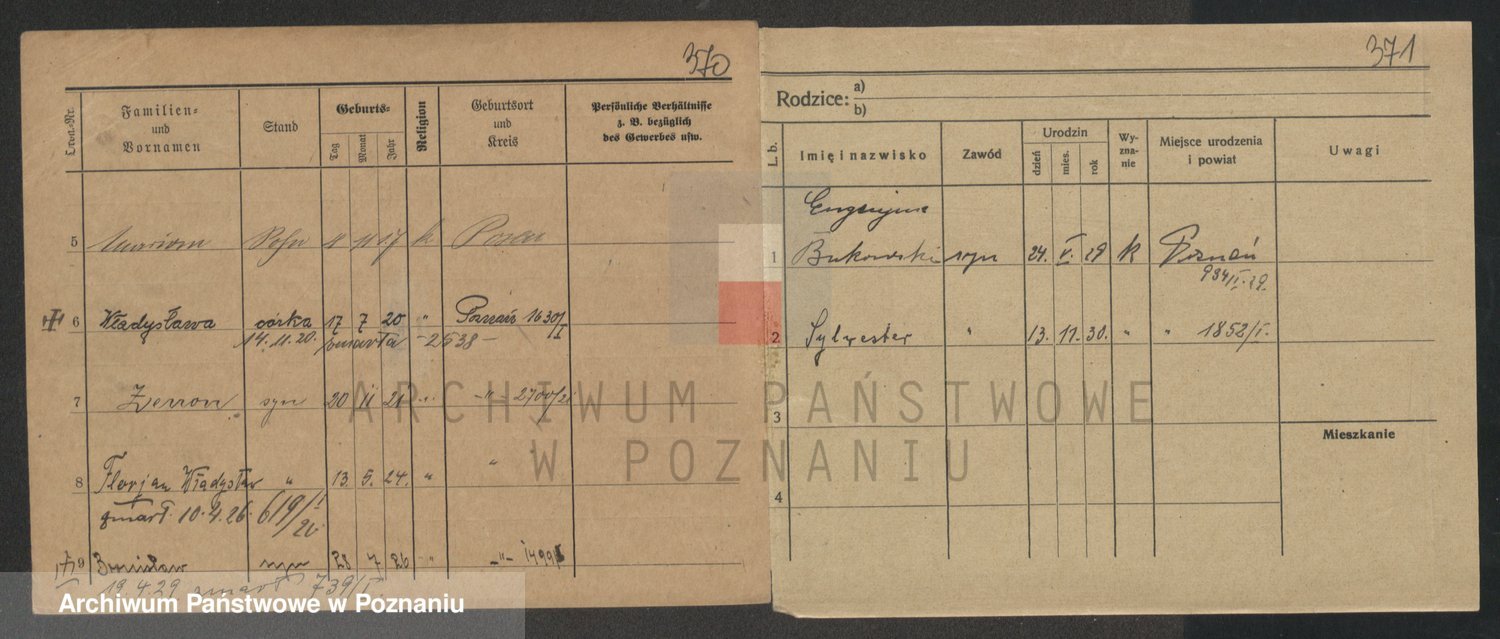 370
Familien-
und
Vornamen
Stand
Geburts-
Tag
Monat
Jahr
Religion
Geburtsort
und
Kreis
Persönliche Verhältnisse
z. B. bezüglich
des Gewerbes usw.
5 Marian Sohn 11 17 k Posen
6 Władysława córka 17 7 20 " Poznań 1630/I
14.11.20. zmarła - 2538 -
7 Zenon syn 20 11 21 -"- 2700/21
8 Florjan Władysław " 13. 5. 24. " "
zmarł. 10.4.26. 619/I
26
9 Bronisław syn 28 7 26 " -"- 1499/I
19.4.29 zmarł 739/I.
371
Rodzice: a)
b)
L. b.
Imię i nazwisko
Zawód
Urodzin
dzień
mies.
rok
Wy-
zna-
nie
Miejsce urodzenia
i powiat
Uwagi
1 Bukowski syn 24. V. 29 k Poznań
934/I.29.
2 Sylwester " 13. 11. 30. " " 1852/I.
3
Mieszkanie
4
ARCHIWUM PAŃSTWOWE
W POZNANIU
Archiwum Państwowe w Poznaniu